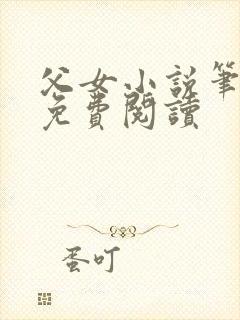 父女小说筆
免費閱讀
蛋叮